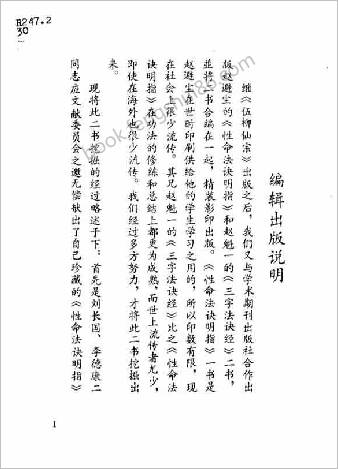 B247.2
30
编辑出版说明
继《伍柳仙宗》出版之后,我们又与学术期刊出版社合作出
版赵避尘的《性命法诀明指》和赵魁一的《三字法诀经》二书,
并将二书合编在一起,精装影印出版。《性命法诀明指》一书是
赵避尘在世时印刷供给他的学生学习之用的,所以印数有限,现
在社会上很少流传。其兄赵魁一的《三字法诀经》比之《性命法
诀明指》在功法的修练和总结上都更为成熟,而世上流传者尤少,
即使在海外也很少流传。我们经过多方努力,才将此二书挖掘出
来。
现将此二书挖掘的经过略述于下:首先是刘长国、李德康二
同志应文献委员会之邀无偿献出了自己珍藏的《性命法诀明指》
1